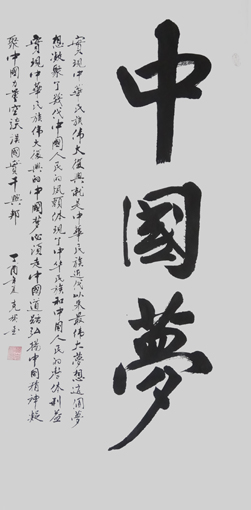 中國夢
實現中華民族偉大復興就是中華民族近代以來最偉大夢想這個夢
想凝聚了幾代中國人民的夙願体現了中华民族和中國人民的整体利益
實現中華民族偉大復興的中國夢必須走中國道路弘揚中國精神凝
聚中國力量空談误國實干興邦
丁酉年